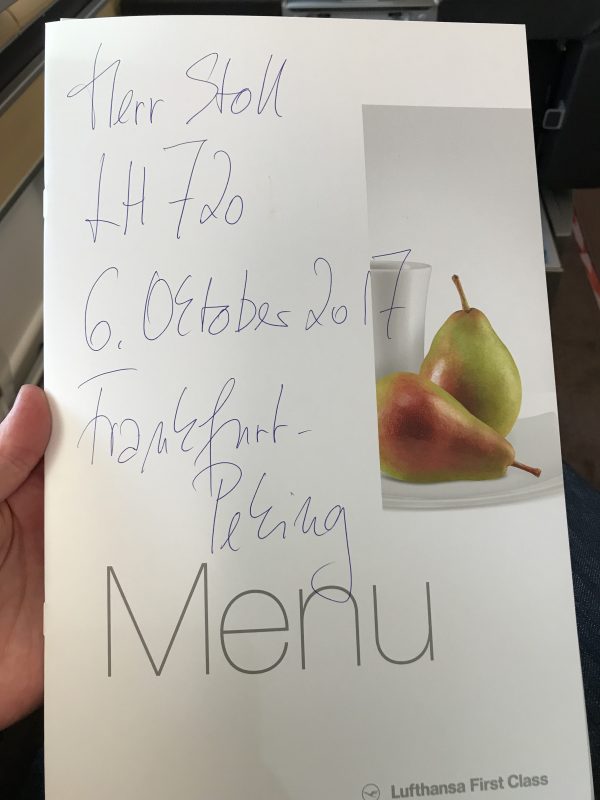 Herr Stoll
LH 720
6. Oktober 2017
Frankfurt-
Peking
Menu
Lufthansa First Class